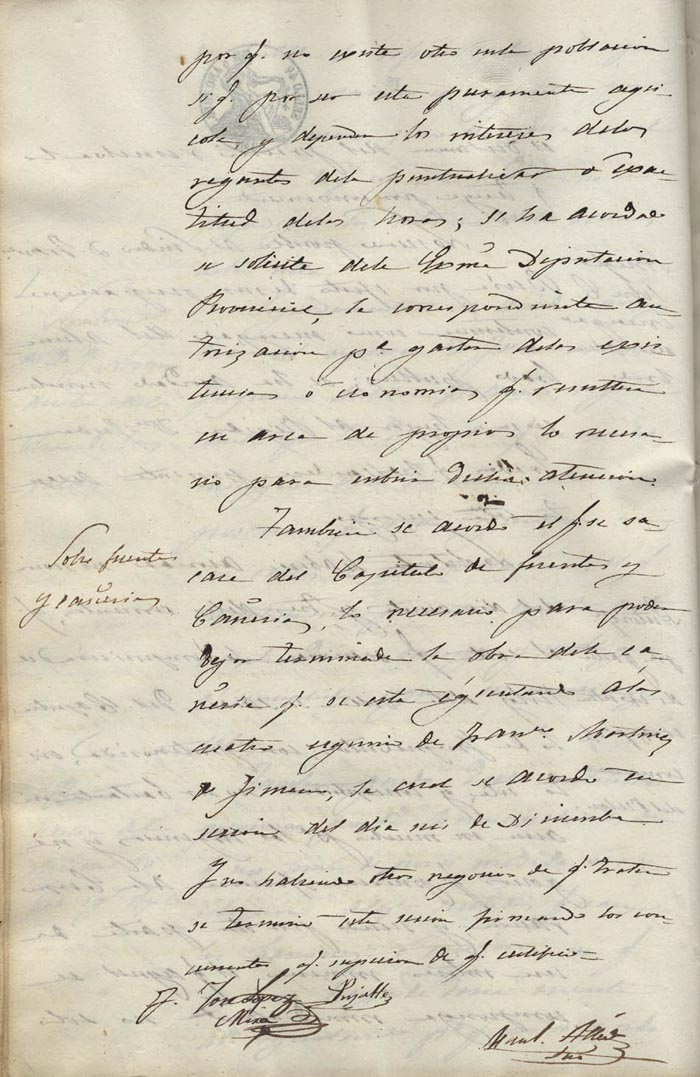 por q. no existe otro en la poblacion
si q. por ser esta puramente agri
cola, y dependen los intereses delos
regantes dela puntualidad o exac
titud delas horas; se ha acordado
se solicite dela Exma Diputacion
Provincial, la correspondiente au
torizacion pa. gastar delas exis
tencias ó economias q. resulten
en arca de propios lo necesa
rio para cubrir dicha atencion.
Tambien se acordó el q. se sa
case del Capitulo de fuentes y
Cañerias, lo necesario para poder
dejar terminada la obra dela ca
ñeria q. se está egecutando alas
cuatro esquinas de Franco. Martinez
de Jimeno, la cual se acordó en
sesion del dia seis de Diciembre
Y no habiendo otros negocios de q. tratar
se terminó esta sesion firmando los con
currentes q. supieron de q. certifico
Sobre fuentes
y cañerias
José Lopez Pujalte
Manl.